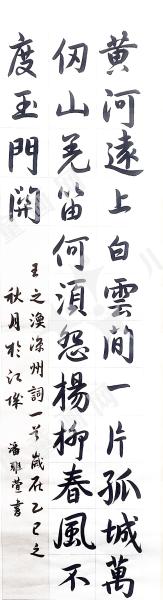 黃河遠上白雲間一片孤城萬
仞山羌笛何須怨楊柳春風不
度玉門關
王之渙涼州詞一首歲在乙巳之
秋月於江城
潘雅萱書